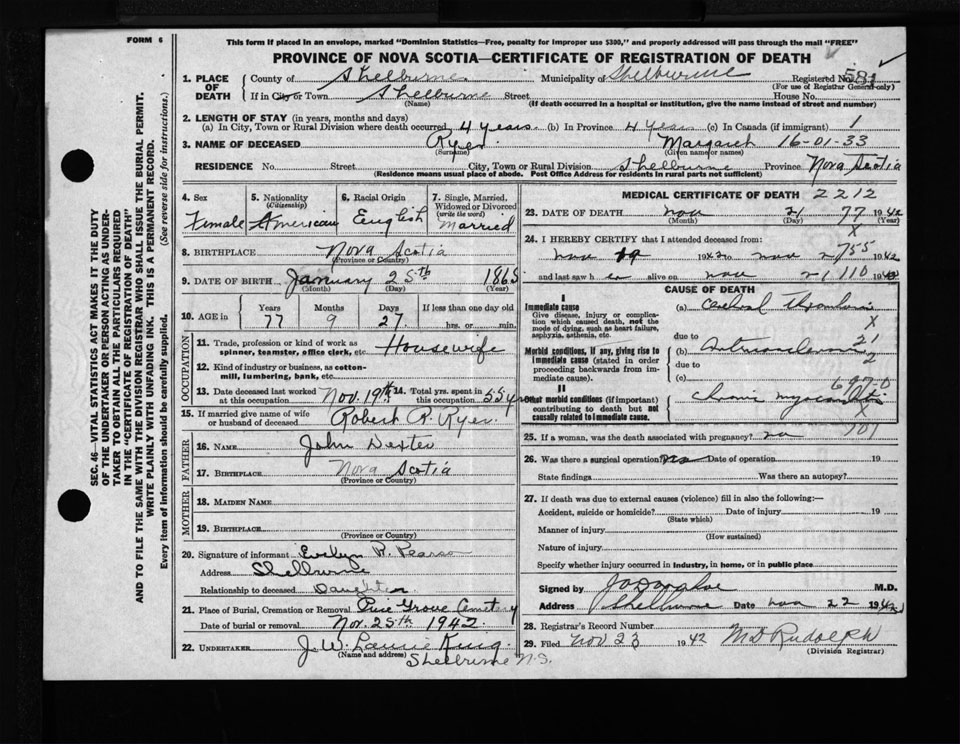 FORM 6
This form if placed in an envelope, marked "Dominion Statistics—Free, penalty for improper use $300," and properly addressed will pass through the mail "FREE"
PROVINCE OF NOVA SCOTIA—CERTIFICATE OF REGISTRATION OF DEATH
SEC. 46—VITAL STATISTICS ACT MAKES IT THE DUTY
OF THE UNDERTAKER OR PERSON ACTING AS UNDER-
TAKER TO OBTAIN ALL THE PARTICULARS REQUIRED
IN THE "CERTIFICATE OF REGISTRATION OF DEATH"
AND TO FILE THE SAME WITH THE DIVISION REGISTRAR WHO SHALL ISSUE THE BURIAL PERMIT.
WRITE PLAINLY WITH UNFADING INK. THIS IS A PERMANENT RECORD.
Every item of information should be carefully supplied. (See reverse side for instructions.)
1. PLACE OF DEATH
County of Shelburne Municipality of Shelburne Registered No. 581
(For use of Registrar General only)
If in City or Town Shelburne Street House No.
(Name) (If death occurred in a hospital or institution, give the name instead of street and number)
2. LENGTH OF STAY (in years, months and days)
(a) In City, Town or Rural Division where death occurred 4 years (b) In Province 4 Years (c) In Canada (if immigrant) 1
3. NAME OF DECEASED Ryer Margaret 16-01-33
(Surname) (Given name or names)
RESIDENCE No. Street City, Town or Rural Division Shelburne Province Nova Scotia
(Residence means usual place of abode. Post Office Address for residents in rural parts not sufficient)
4. Sex Female
5. Nationality (Citizenship) American
6. Racial Origin English
7. Single, Married, Widowed or Divorced (write the word) Married
8. BIRTHPLACE Nova Scotia
(Province or Country)
9. DATE OF BIRTH January 25th 1865
(Month) (Day) (Year)
10. AGE in Years Months Days If less than one day old
77 9 27 hrs. or min.
OCCUPATION
11. Trade, profession or kind of work as spinner, teamster, office clerk, etc. Housewife
12. Kind of industry or business, as cotton-mill, lumbering, bank, etc.
13. Date deceased last worked at this occupation Nov. 19th
14. Total yrs. spent in this occupation 55
15. If married give name of wife or husband of deceased Robert R. Ryer
FATHER
16. NAME John Dexter
17. BIRTHPLACE Nova Scotia
(Province or Country)
MOTHER
18. MAIDEN NAME
19. BIRTHPLACE
(Province or Country)
20. Signature of informant Evelyn R. Pearson
Address Shelburne
Relationship to deceased Daughter
21. Place of Burial, Cremation or Removal Pine Grove Cemetery
Date of burial or removal Nov. 25th 1942
22. UNDERTAKER J. W. King
(Name and address) Shelburne N.S.
MEDICAL CERTIFICATE OF DEATH 2212
23. DATE OF DEATH Nov 21 77 1942
(Month) (Day) (Year)
X
24. I HEREBY CERTIFY that I attended deceased from:
Nov 19 1942 to Nov 2 755 1942
and last saw her alive on Nov 21 110 1942
CAUSE OF DEATH
I
Immediate cause
Give disease, injury or complication which caused death, not the mode of dying, such as heart failure, asphyxia, asthenia, etc.
(a) Cerebral Thrombosis
X
due to 21
Morbid conditions, if any, giving rise to immediate cause (stated in order proceeding backwards from immediate cause).
(b) Arteriosclerosis
2
due to
(c)
II
Other morbid conditions (if important) contributing to death but not causally related to immediate cause.
Chronic myocarditis
X
25. If a woman, was the death associated with pregnancy? no 701
26. Was there a surgical operation? no Date of operation 19
State findings Was there an autopsy?
27. If death was due to external causes (violence) fill in also the following:—
Accident, suicide or homicide? Date of injury 19
(State which)
Manner of injury
(How sustained)
Nature of injury
Specify whether injury occurred in industry, in home, or in public place
Signed by M.D.
Address Shelburne Date Nov 22 1942
28. Registrar's Record Number
29. Filed Nov 23 1942 M D Rudolph
(Division Registrar)